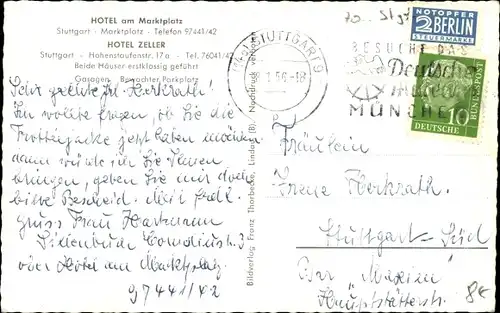 HOTEL am Marktplatz
Stuttgart - Marktplatz - Telefon 97441/42
HOTEL ZELLER
Stuttgart - Hohenstaufenstr. 17 a - Tel. 76041/42
Beide Häuser erstklassig geführt
Garagen Bewachter Parkplatz
Sehr geehrte Frl. Herkrath!
Ihn wollte fragen, ob Sie die
jetzt haben möchten
dann würde ich Sie Ihnen
bringen, geben Sie mir doch
bitte Bescheid. Mit frdl.
Gruss Frau Hartmann
3
oder Hotel am Marktplatz
97441/42
Bildverlag Franz Thorbecke, Lindau (B). Nachdruck verboten
STUTTGART 9
1.56.-18
BESUCHE DAS
Deutsche
Museum
MÜNCHEN
NOTOPFER
2 BERLIN
STEUERMARKE
DEUTSCHE
BUNDESPOST
10
Fräulein
Irene Herkrath
Stuttgart-Süd
Bar "Maxim"
Hauptstätterstr.
8€